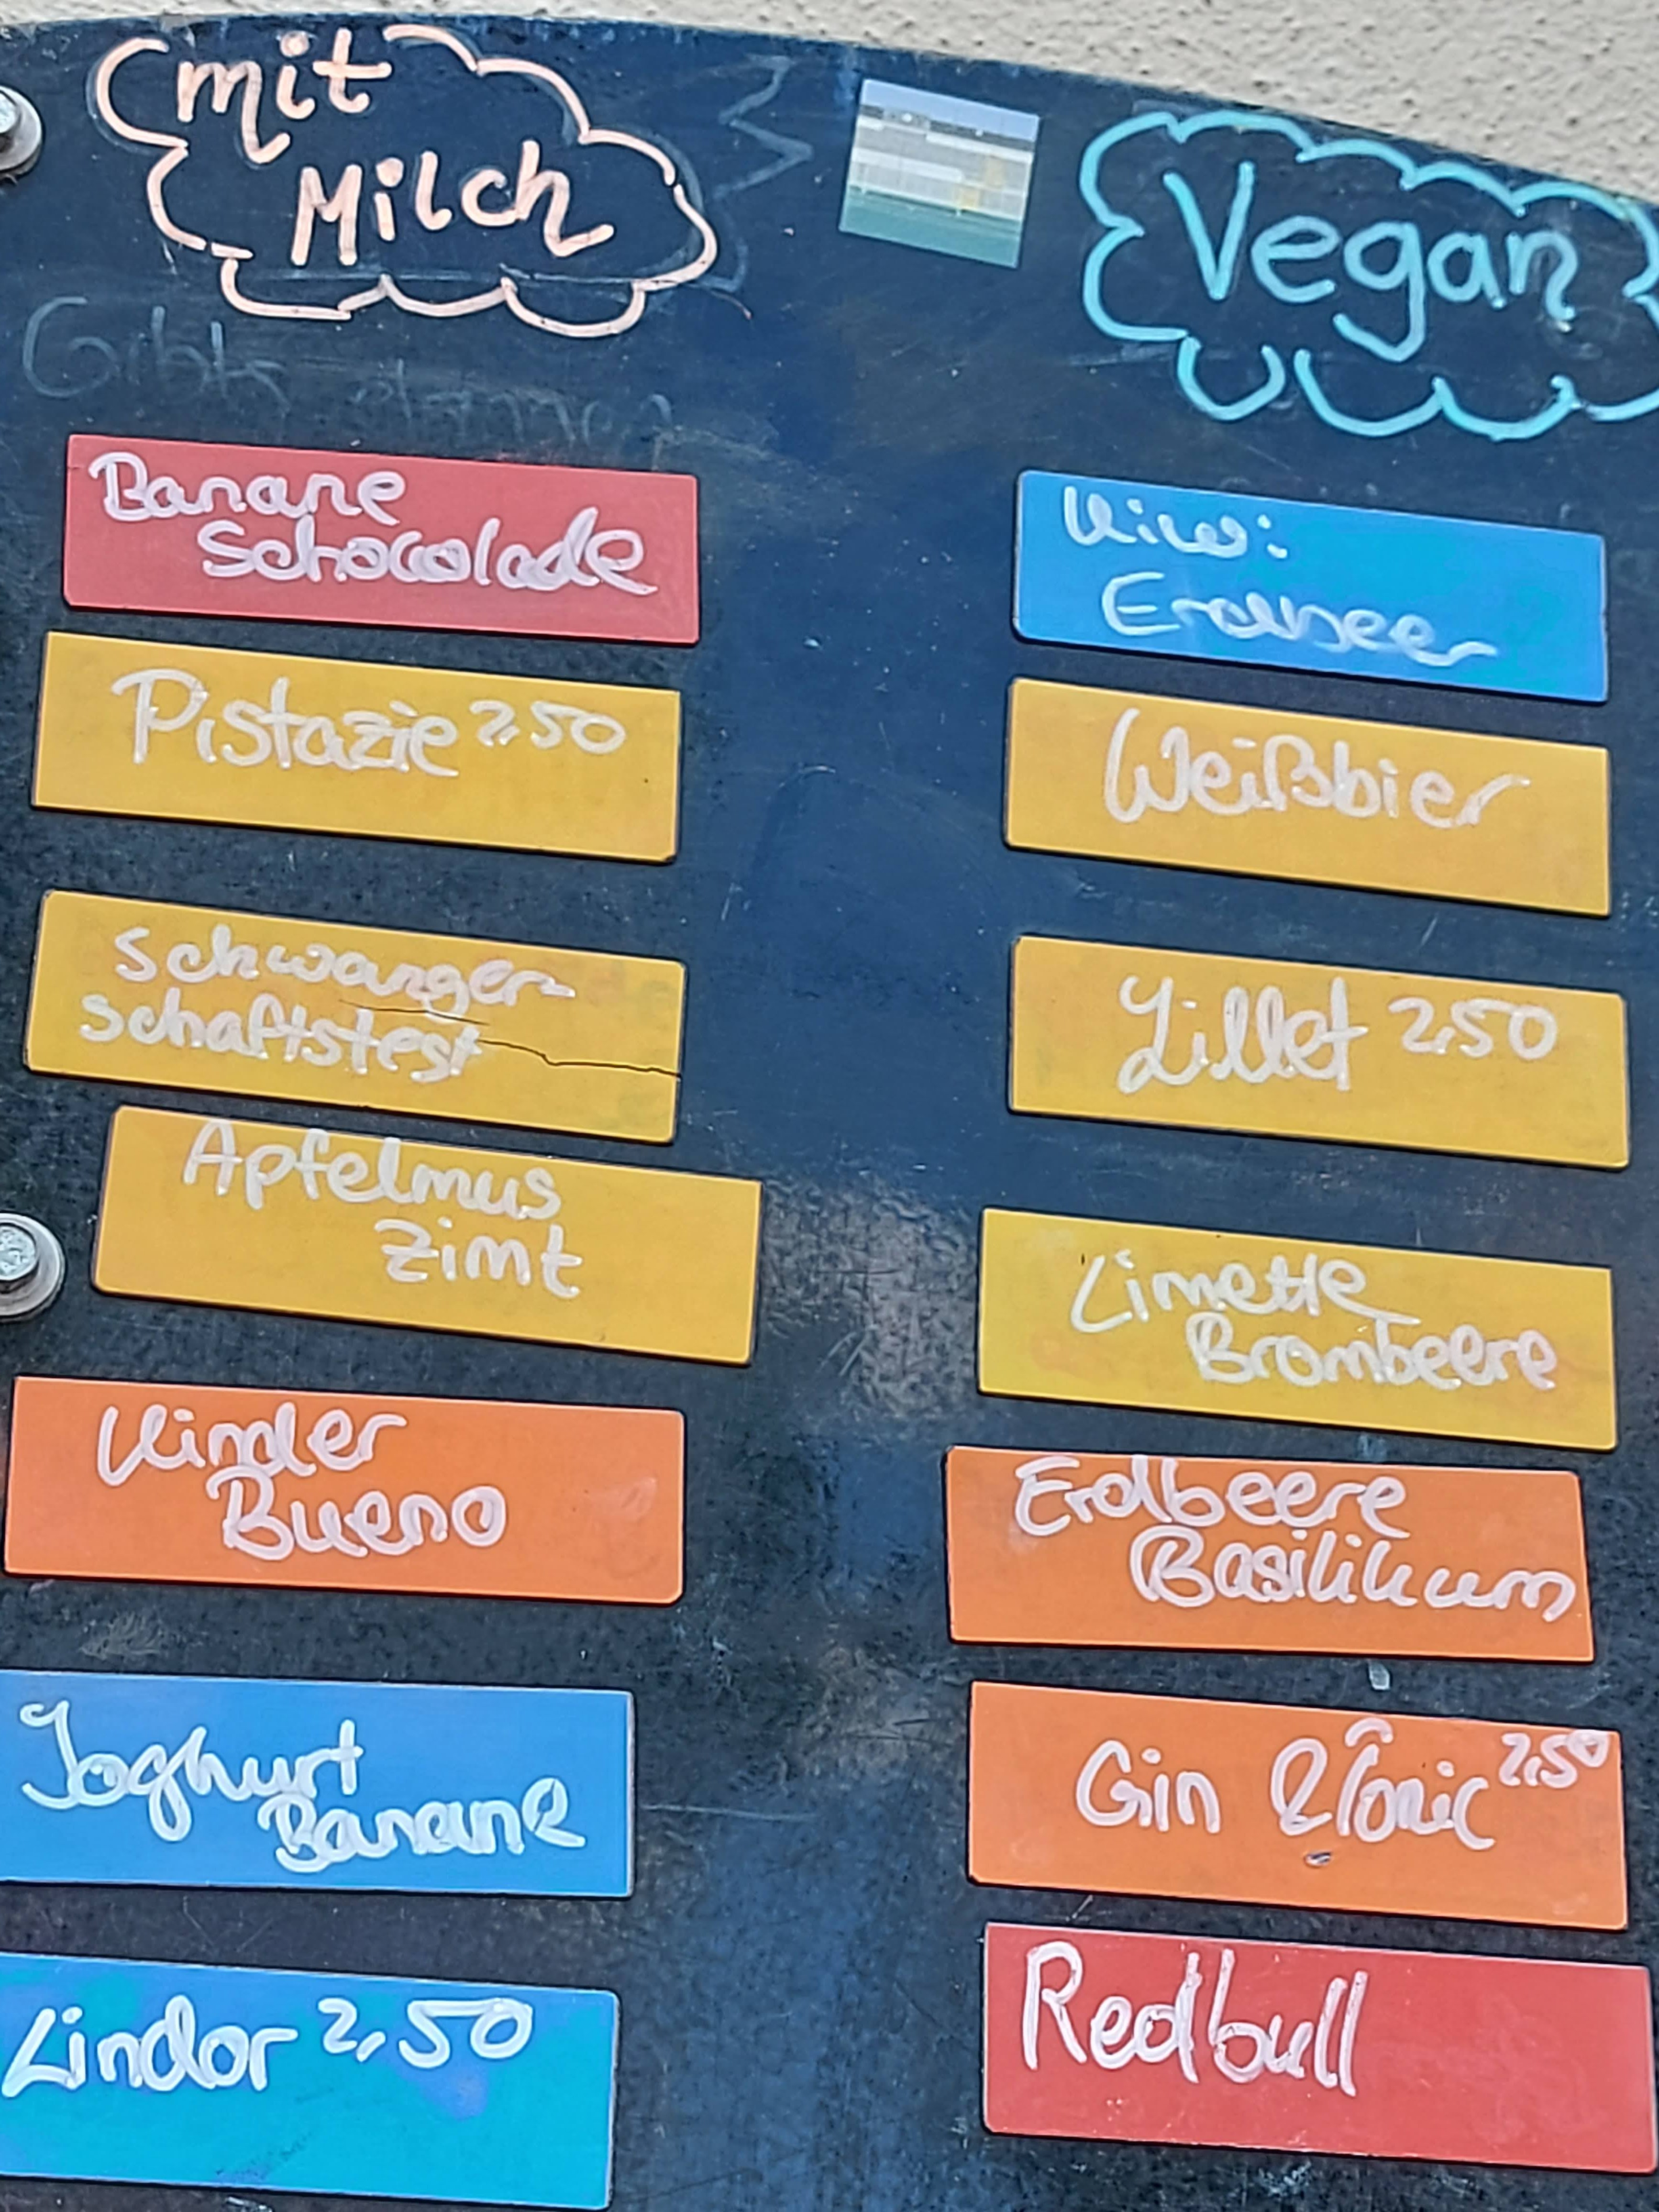 mit
Milch
Banane
Schocolade
Pistazie 2,50
Schwanger-
schaftstest
Apfelmus
Zimt
Kinder
Bueno
Joghurt
Banane
Lindor 2,50
Vegan
Kiwi
Erdbeer
Weißbier
Lillet 2,50
Limette
Brombeere
Erdbeere
Basilikum
Gin & Tonic 2,50
Redbull